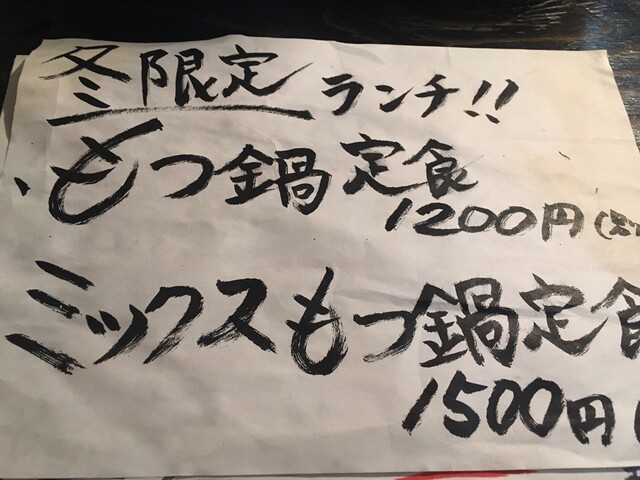 冬限定 ランチ!!
・もつ鍋定食
1200円(
ミックスもつ鍋定食
1500円(